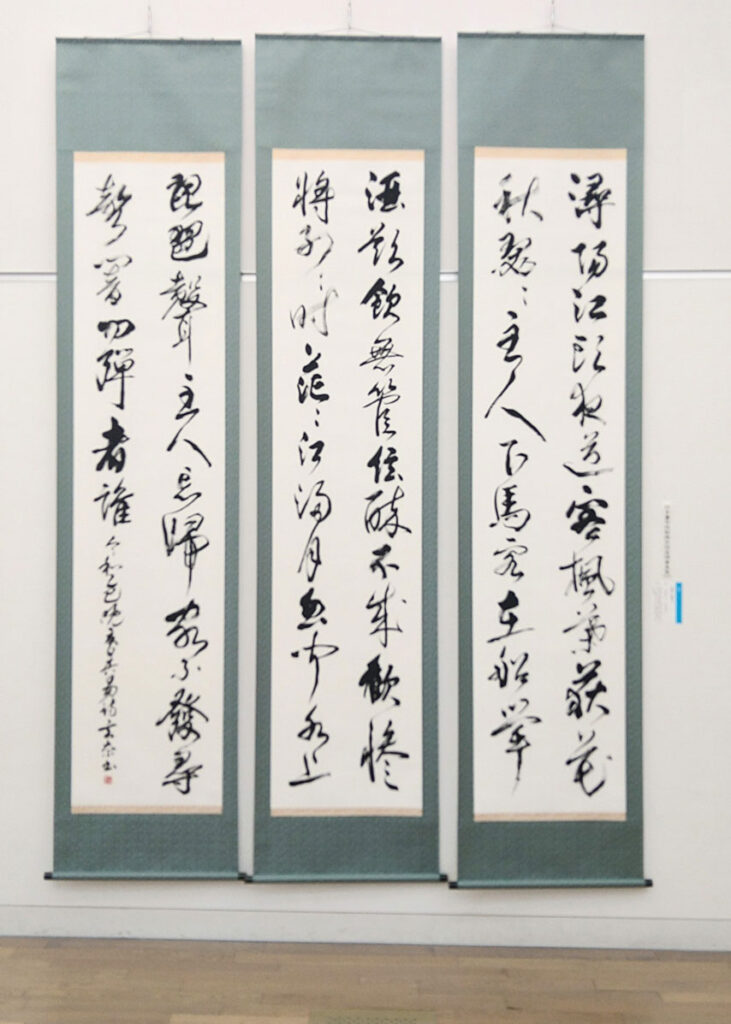 潯陽江頭夜送客楓葉荻花
秋瑟々主人下馬客在船舉
酒欲飲無管弦醉不成歡慘
將別々時茫々江浸月忽聞水上
琵琶聲主人忘歸客不發尋
聲闇問彈者誰 令和